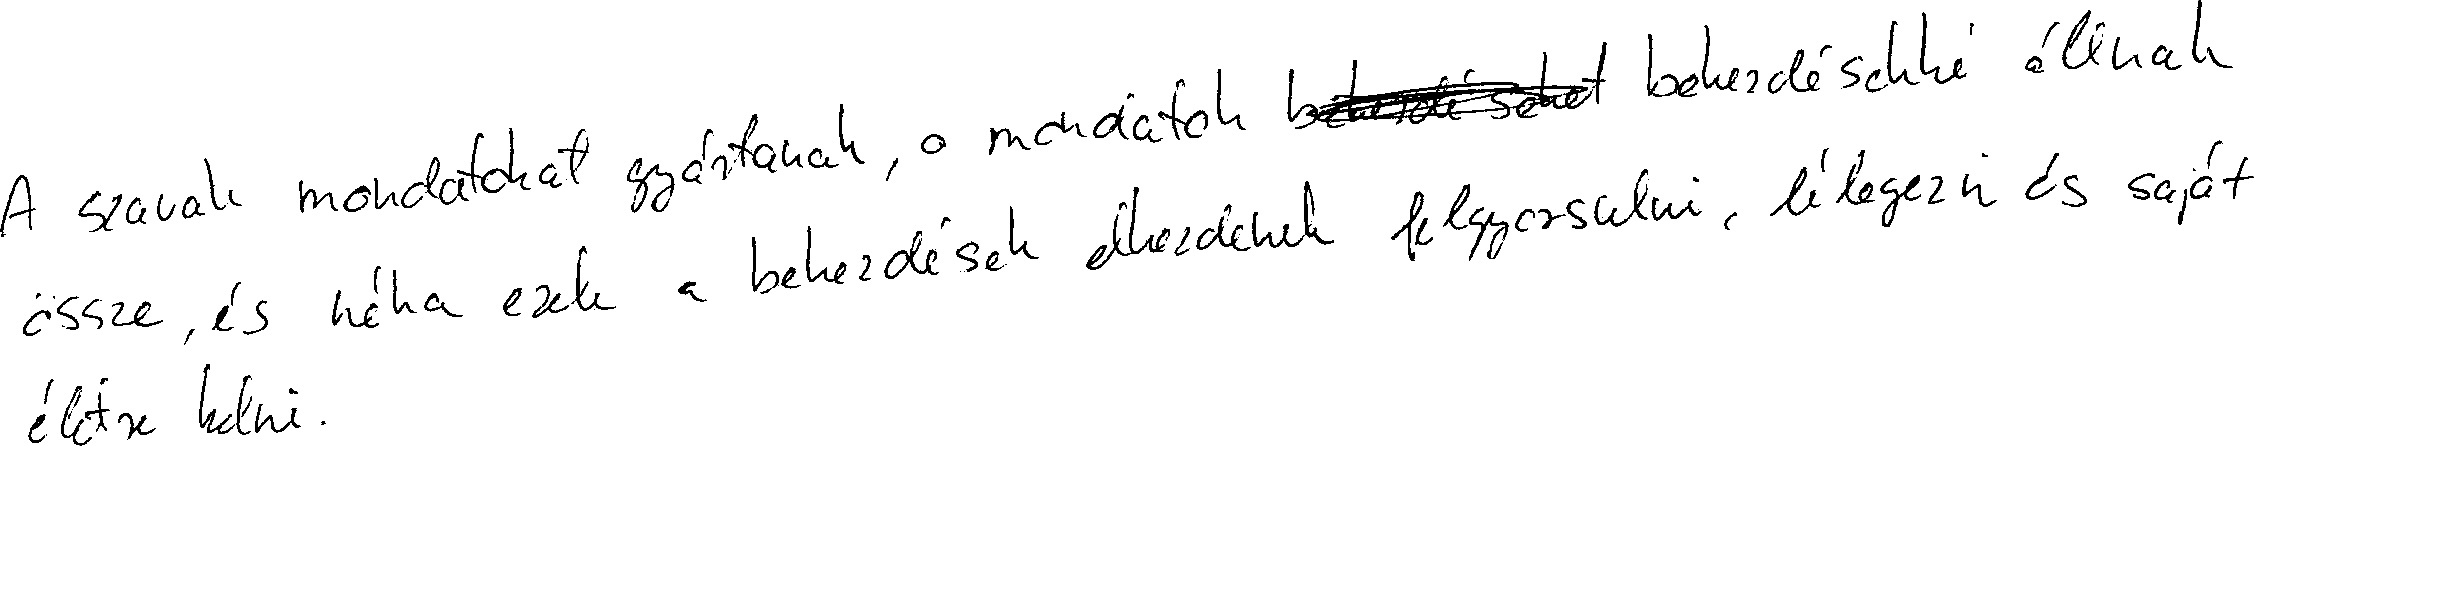 A szavak mondatokat gyártanak, a mondatok bekezdésekké állnak
össze, és néha ezek a bekezdések elkezdenek felgyorsulni, lélegezni és saját
életre kelni.